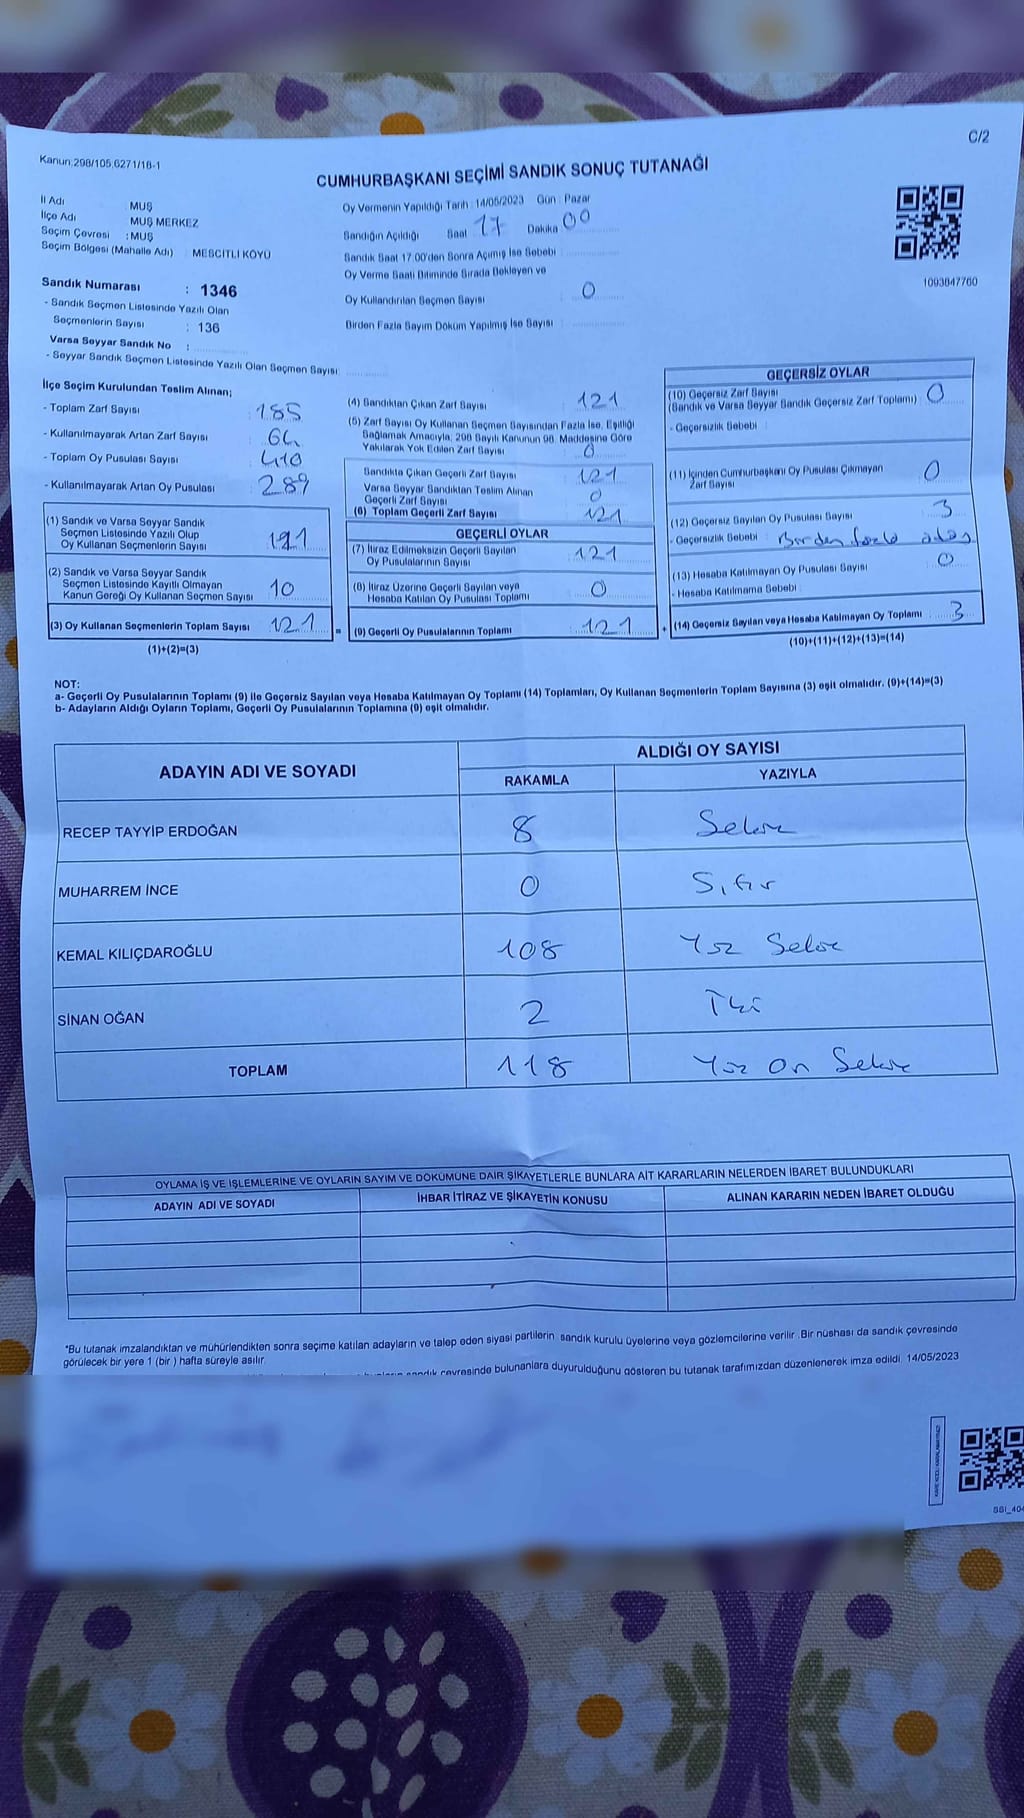 C/2
Kanun:298/105,6271/18-1
CUMHURBAŞKANI SEÇİMİ SANDIK SONUÇ TUTANAĞI
İl Adı MUŞ
İlçe Adı MUŞ MERKEZ
Seçim Çevresi : MUŞ
Seçim Bölgesi (Mahalle Adı) MESCİTLİ KÖYÜ
Sandık Numarası : 1346
- Sandık Seçmen Listesinde Yazılı Olan
Seçmenlerin Sayısı : 136
Varsa Seyyar Sandık No :
- Seyyar Sandık Seçmen Listesinde Yazılı Olan Seçmen Sayısı:
Oy Vermenin Yapıldığı Tarih : 14/05/2023 Gün : Pazar
Sandığın Açıldığı Saat 17 Dakika 00
Sandık Saat 17.00'den Sonra Açılmış İse Sebebi :
Oy Verme Saati Bitiminde Sırada Bekleyen ve
Oy Kullandırılan Seçmen Sayısı : 0
Birden Fazla Sayım Döküm Yapılmış İse Sayısı :
1093847760
İlçe Seçim Kurulundan Teslim Alınan;
- Toplam Zarf Sayısı : 185
- Kullanılmayarak Artan Zarf Sayısı : 64
- Toplam Oy Pusulası Sayısı : 410
- Kullanılmayarak Artan Oy Pusulası : 289
(1) Sandık ve Varsa Seyyar Sandık
Seçmen Listesinde Yazılı Olup
Oy Kullanan Seçmenlerin Sayısı : 121
(2) Sandık ve Varsa Seyyar Sandık
Seçmen Listesinde Kayıtlı Olmayan
Kanun Gereği Oy Kullanan Seçmen Sayısı : 10
(3) Oy Kullanan Seçmenlerin Toplam Sayısı : 121
(1)+(2)=(3)
=
(4) Sandıktan Çıkan Zarf Sayısı : 121
(5) Zarf Sayısı Oy Kullanan Seçmen Sayısından Fazla İse, Eşitliği
Sağlamak Amacıyla, 298 Sayılı Kanunun 98. Maddesine Göre
Yakılarak Yok Edilen Zarf Sayısı : 0
Sandıkta Çıkan Geçerli Zarf Sayısı : 121
Varsa Seyyar Sandıktan Teslim Alınan
Geçerli Zarf Sayısı : 0
(6) Toplam Geçerli Zarf Sayısı : 121
GEÇERLİ OYLAR
(7) İtiraz Edilmeksizin Geçerli Sayılan
Oy Pusulalarının Sayısı : 121
(8) İtiraz Üzerine Geçerli Sayılan veya
Hesaba Katılan Oy Pusulası Toplamı : 0
(9) Geçerli Oy Pusulalarının Toplamı : 121
+
GEÇERSİZ OYLAR
(10) Geçersiz Zarf Sayısı
(Sandık ve Varsa Seyyar Sandık Geçersiz Zarf Toplamı) : 0
- Geçersizlik Sebebi :
(11) İçinden Cumhurbaşkanı Oy Pusulası Çıkmayan
Zarf Sayısı : 0
(12) Geçersiz Sayılan Oy Pusulası Sayısı : 3
- Geçersizlik Sebebi : Birden fazla
(13) Hesaba Katılmayan Oy Pusulası Sayısı : 0
- Hesaba Katılmama Sebebi :
(14) Geçersiz Sayılan veya Hesaba Katılmayan Oy Toplamı : 3
(10)+(11)+(12)+(13)=(14)
NOT:
a- Geçerli Oy Pusulalarının Toplamı (9) ile Geçersiz Sayılan veya Hesaba Katılmayan Oy Toplamı (14) Toplamları, Oy Kullanan Seçmenlerin Toplam Sayısına (3) eşit olmalıdır. (9)+(14)=(3)
b- Adayların Aldığı Oyların Toplamı, Geçerli Oy Pusulalarının Toplamına (9) eşit olmalıdır.
ADAYIN ADI VE SOYADI
ALDIĞI OY SAYISI
RAKAMLA YAZIYLA
RECEP TAYYİP ERDOĞAN 8 Sekiz
MUHARREM İNCE 0 Sıfır
KEMAL KILIÇDAROĞLU 108 Yüz Sekiz
SİNAN OĞAN 2 İki
TOPLAM 118 Yüz On Sekiz
OYLAMA İŞ VE İŞLEMLERİNE VE OYLARIN SAYIM VE DÖKÜMÜNE DAİR ŞİKAYETLERLE BUNLARA AİT KARARLARIN NELERDEN İBARET BULUNDUKLARI
ADAYIN ADI VE SOYADI İHBAR İTİRAZ VE ŞİKAYETİN KONUSU ALINAN KARARIN NEDEN İBARET OLDUĞU
*Bu tutanak imzalandıktan ve mühürlendikten sonra seçime katılan adayların ve talep eden siyasi partilerin sandık kurulu üyelerine veya gözlemcilerine verilir .Bir nüshası da sandık çevresinde
görülecek bir yere 1 (bir ) hafta süreyle asılır.
sandık çevresinde bulunanlara duyurulduğunu gösteren bu tutanak tarafımızdan düzenlenerek imza edildi. 14/05/2023